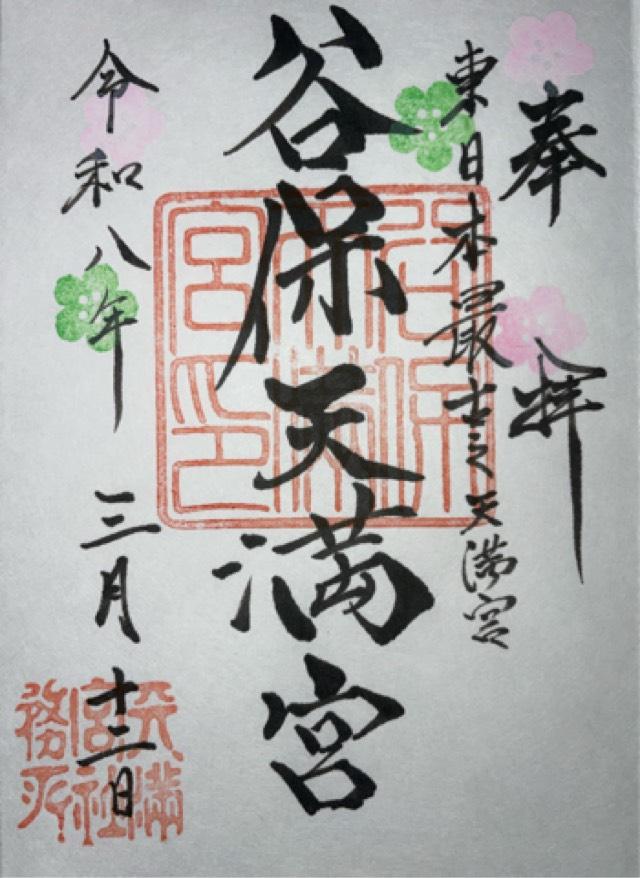 奉拝
東日本最古之天満宮
谷保天満宮
令和八年三月十二日
谷保天満宮印
天満宮社務所